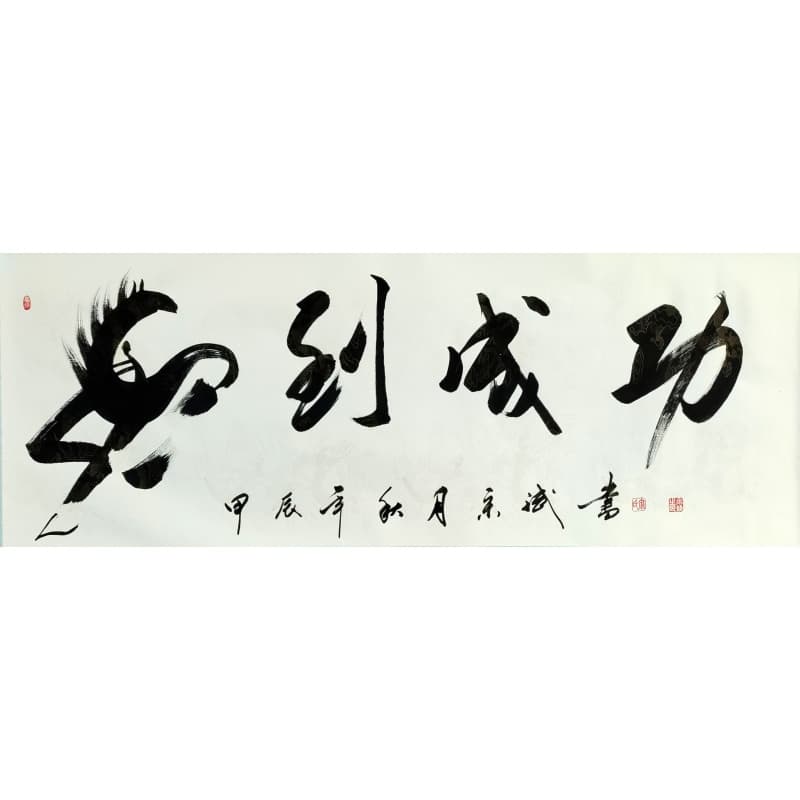 馬到成功
甲辰年秋月宗斌書